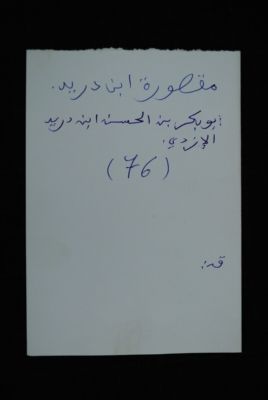 مقصورة ابن دريد.
أبو بكر بن الحسن ابن دريد
الازدي.
(76)
قد: